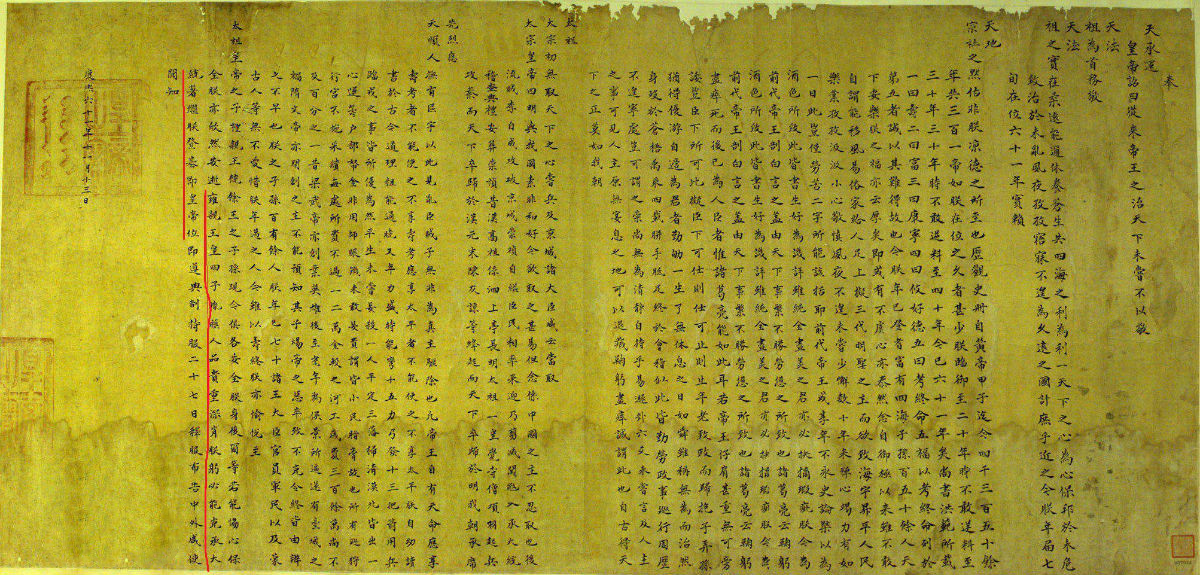 奉
天承運
皇帝詔曰從來帝王之治天下未嘗不以敬
天法
祖為首務敬
天法
祖之實在柔遠能邇休養蒼生共四海之利為利一天下之心為心保邦於未危
致治於未亂夙夜孜孜寤寐不遑為久遠之國計庶乎近之今朕年屆七
旬在位六十一年實賴
天地
宗社之默佑非朕涼德之所至也歷觀史冊自黃帝甲子迄今四千三百五十餘
年共三百一帝如朕在位之久者甚少朕臨御至二十年時不敢逆料至
三十年三十年時不敢逆料至四十年今已六十一年矣尚書洪範所載
一曰壽二曰富三曰康寧四曰攸好德五曰考終命五福以考終命列於
第五者誠以其難得故也今朕年已登耆富有四海子孫百五十餘人天
下安樂朕之福亦云厚矣即或有不虞心亦泰然念自御極以來雖不敢
自謂能移風易俗家給人足上擬三代明聖之主而欲致海宇昇平人民
樂業孜孜汲汲小心敬慎夙夜不遑未嘗少懈數十年來殫心竭力有如
一日此豈僅勞苦二字所能該括耶前代帝王或享年不永史論槩以為
酒色所致此皆書生好為譏評雖純全盡美之君亦必抉摘瑕疵朕今為
前代帝王剖白言之蓋由天下事繁不勝勞憊之所致也諸葛亮云鞠躬
酒色所致此皆書生好為譏評雖純全盡美之君亦必抉摘瑕疵朕今為
前代帝王剖白言之蓋由天下事繁不勝勞憊之所致也諸葛亮云鞠躬
盡瘁死而後已為人臣者惟諸葛亮能如此耳若帝王仔肩甚重無可旁
諉豈臣下所可比擬臣下可仕則仕可止則止年老致政而歸抱子弄孫
猶得優游自適為君者勤劬一生了無休息之日如舜雖稱無為而治然
身歿於蒼梧禹乘四載胼手胝足終於會稽似此皆勤勞政事巡行周歷
不遑寧處豈可謂之崇尚無為清靜自持乎易遯卦六爻未嘗言及人主
之事可見人主原無宴息之地可以退藏鞠躬盡瘁誠謂此也自古得天
下之正莫如我朝
太祖
太宗初無取天下之心嘗兵及京城諸大臣咸云當取
太宗皇帝曰明與我國素非和好今欲取之甚易但念係中國之主不忍取也後
流賊李自成攻破京城崇禎自縊臣民相率來迎乃剪滅闖寇入承大統
稽查典禮安葬崇禎昔漢高祖係泗上亭長明太祖一皇覺寺僧項羽起兵
攻秦而天下卒歸於漢元末陳友諒等蜂起而天下卒歸於明我朝承席
先烈應
天順人撫有區宇以此見亂臣賊子無非為真主驅除也凡帝王自有天命應享
壽考者不能使之不享壽考應享太平者不能使之不享太平朕自幼讀
書於古今道理粗能通曉又年力盛時能彎十五力弓發十三把箭用兵
臨戎之事皆所優為然平生未嘗妄殺一人平定三藩掃清漠北皆出一
心運籌戶部帑金非用師賑饑未敢妄費謂皆小民脂膏故也所有巡狩
行宮不施采繢每處所費不過一二萬金較之河工歲費三百餘萬尚不
及百分之一昔梁武帝亦創業英雄後至耄年為侯景所逼遂有臺城之
禍隋文帝亦開創之主不能預知其子煬帝之惡卒致不克令終皆由辨
之不早也朕之子孫百有餘人朕年已七十諸王大臣官員軍民以及蒙
古人等無不愛惜朕年邁之人今雖以壽終朕亦愉悅至
太祖皇帝之子禮親王饒餘王之子孫現今俱各安全朕身後爾等若能協心保
全朕亦欣然安逝雍親王皇四子胤禛人品貴重深肖朕躬必能克承大
統著繼朕登基即皇帝位即遵典制持服二十七日釋服布告中外咸使
聞知
康熙六十一年十一月十三日